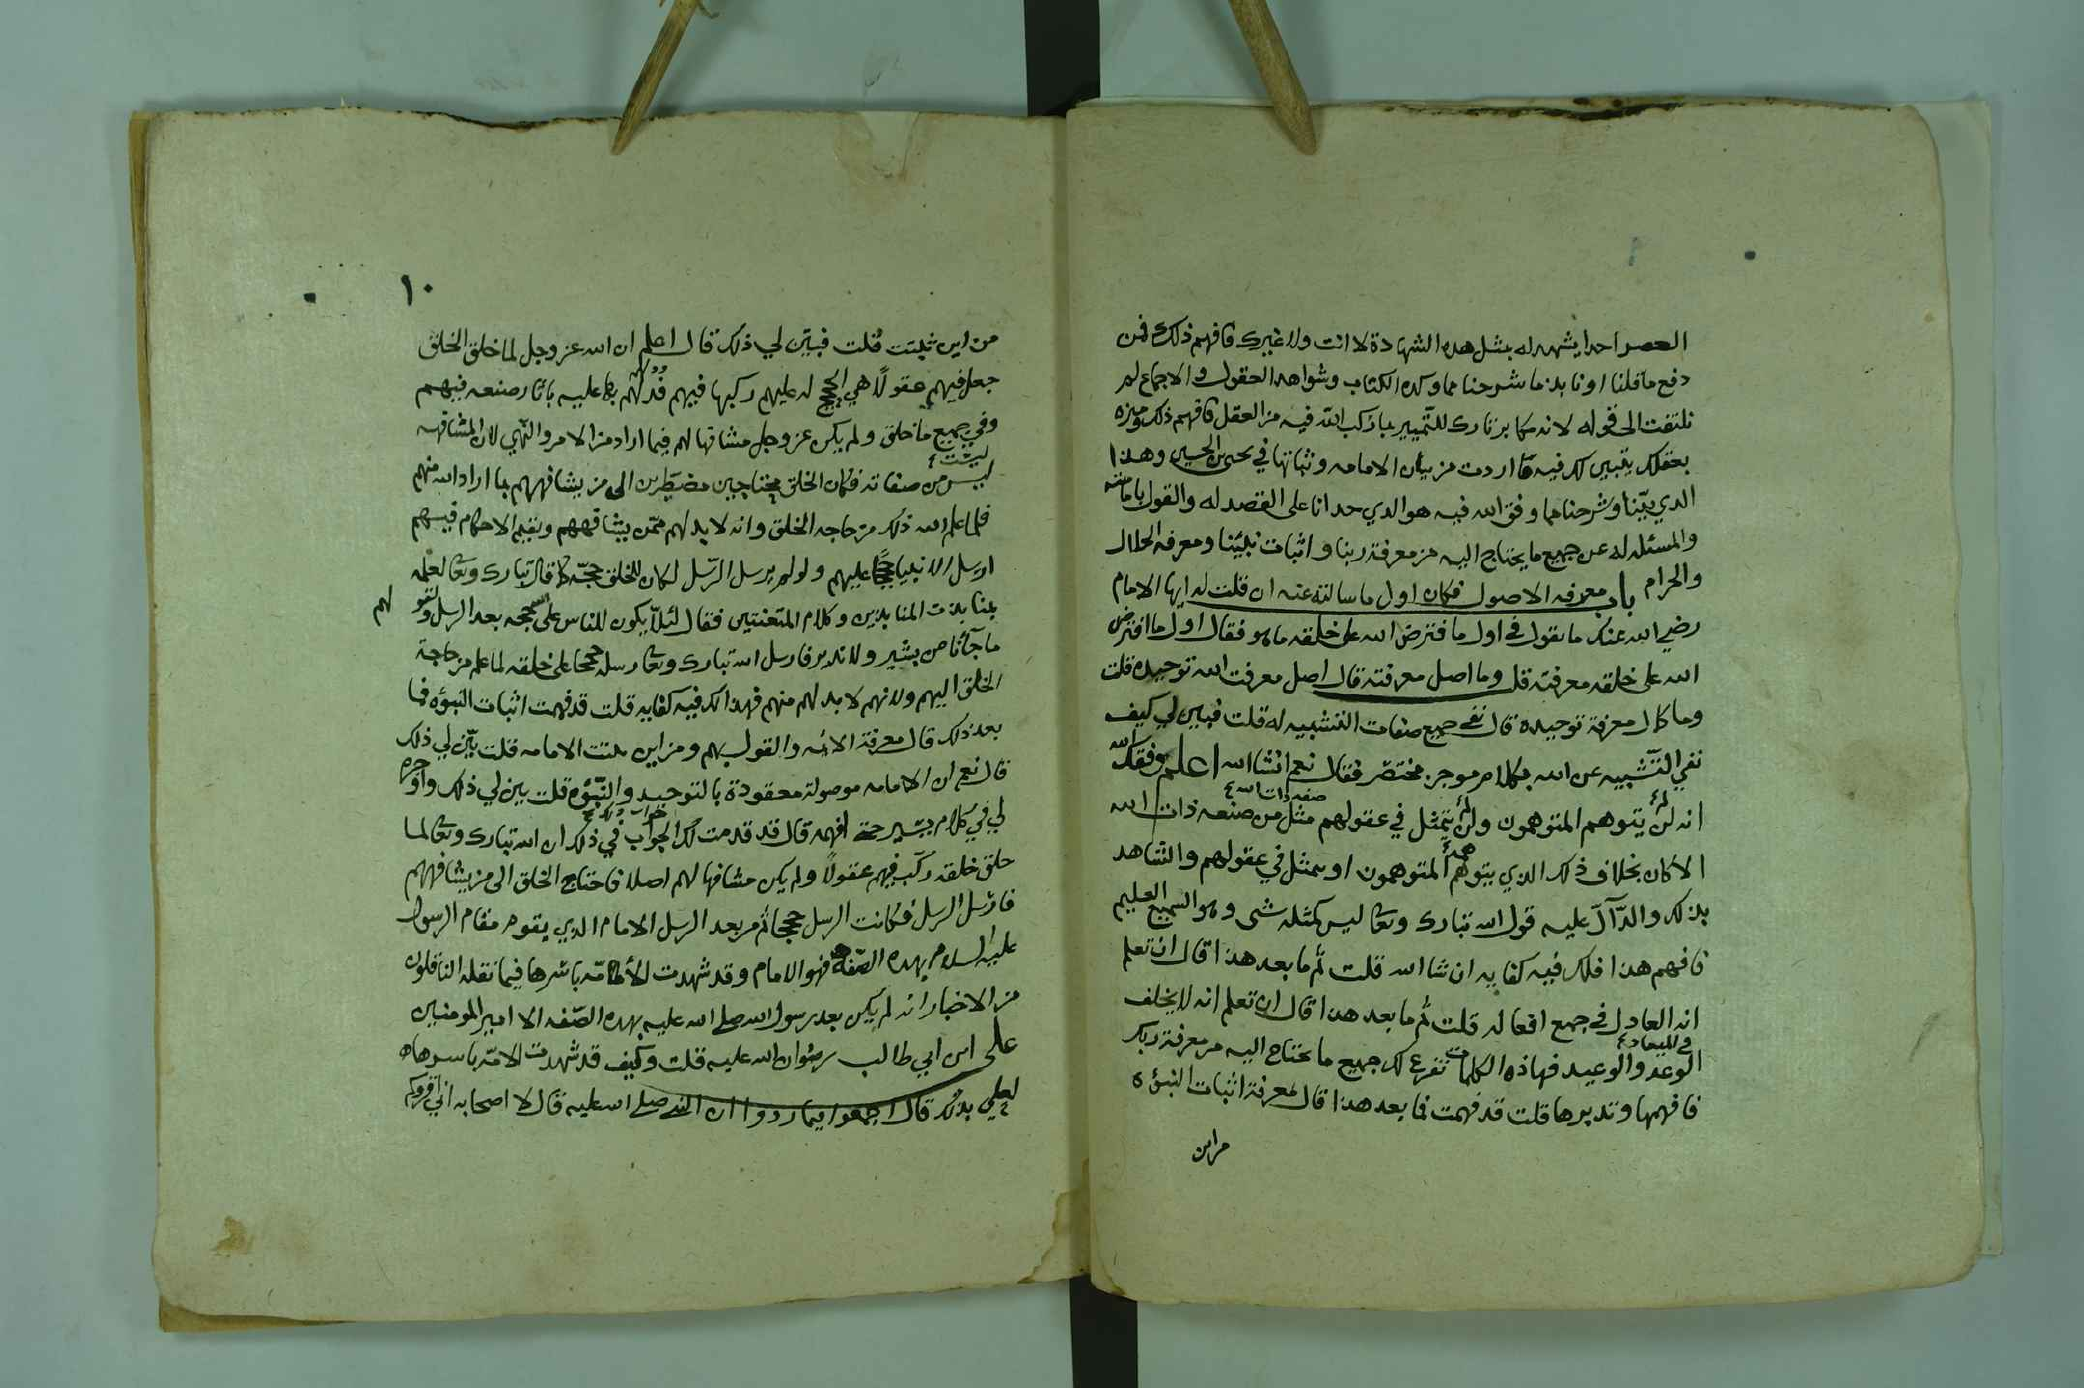 العصر احدا يشهد له بمثل هذه الشهادة لا انت ولا غيرك فافهم ذلك فمن
دفع ما قلنا او نابذ ما شرحنا مما وكده الكتاب وشواهد العقول والاجماع لم
نلتفت الى قوله لانه مكابر تارك للتمييز بما ركب الله فيه من العقل فافهم ذلك وميزه
بعقلك يتبين لك فيه ما اردت من بيان الامامه وثباتها في يحيى بن الحسين وهذا
الذي بيّنا وشرحنا مما وفق الله فيه هو الذي حدانا على القصد له والقول بامامته
والمسئله له عن جميع ما يحتاج اليه من معرفة ربنا واثبات نبيّنا ومعرفه الحلال
والحرام باب معرفه الاصول فكان اول ما سالته عنه ان قلت له ايها الامام
رضي الله عنك ما تقول في اول ما افترض الله على خلقه ما هو فقال اول ما افترض
الله على خلقه معرفته قلت وما اصل معرفته قال اصل معرفت الله توحيده قلت
وما كمال معرفة توحيده قال نفي جميع صفات التشبيه له قلت فبين لي كيف
نفي التّشبيه عن الله بكلام موجز مختصر فقال نعم انشا الله اعلم وفقك الله
انه لن يتوهم المتوهمون ولن يتمثل في عقولهم مثل من صنعه ذات الله
صفه ذات الله
الا كان بخلاف ذلك الذي يتوهم المتوهمون او يتمثل في عقولهم والشاهد
بذلك والدّالّ عليه قول الله تبارك وتعا ليس كمثله شي وهو السميع العليم
فافهم هذا فلك فيه كفايه ان شا الله قلت ثم ما بعد هذا قال ان تعلم
انه العادل في جميع افعاله قلت ثم ما بعد هذا قال ان تعلم انه لا يخلف
في الميعاد
الوعد والوعيد فهاذه الكلمات تفرع لك جميع ما تحتاج اليه من معرفة ربك
فافهمها وتدبرها قلت قد فهمت فما بعد هذا قال معرفة اثبات النبؤه
من اين
١٠
من اين ثبتت قلت فبيّن لي ذلك قال اعلم ان الله عز وجل لما خلق الخلق
جعل فيهم عقولًا هي الحجج له عليهم ركبها فيهم فدلهم بها عليه باثار صنعه فيهم
وفي جميع ما خلق ولم يكن عز وجل مشافها لهم فيما اراد من الامر والنّهي لان المشافهه
ليست
ليس من صفاته فكان الخلق محتاجين مضطرين الى من يشافههم بما اراد الله منهم
فلما علم الله ذلك من حاجه الخلق وانه لا بد لهم ممّن يشافههم ويقيم الاحكام فيهم
ارسل الانبيا حججًا عليهم ولو لم يرسل الرّسل لكان للخلق حجّه كما قال تبارك وتعا لعلمه
بمنابذت المنابذين وكلام المتعنتين فقال لئلّا يكون للناس على الله حجه بعد الرسل ولقولهم
ما جآئنا من بشير ولا نذير فارسل الله تبارك وتعا رسله حججا على خلقه لما علم من حاجة
الخلق اليهم ولانهم لا بد لهم منهم فهذا لك فيه كفايه قلت قد فهمت اثبات النبؤه فما
بعد ذلك قال معرفة الائمه والقول بهم ومن اين ثبتت الامامه قلت بيّن لي ذلك
قال نعم ان الامامه موصولة معقودة بالتوحيد والنّبؤه قلت بين لي ذلك واوجزه
لي في كلام يسير حتى افهمه قال قد قدمت لك الجواب في ذلك ان الله تبارك وتعا لما
خلق خلقه ركّب فيهم عقولًا ولم يكن مشافها لهم اصلا فاحتاج الخلق الى من يشافههم
فارسل الرسل فكانت الرسل حججا ثم من بعد الرسل الامام الذي يقوم مقام الرسول
عليه السلام بهذه الصّفه فهو الامام وقد شهدت الأمّه باسرها فيما نقله الناقلون
من الاخبار انه لم يكن بعد رسول الله صلى الله عليه بهذه الصّفه الا امير المومنين
علي ابن ابي طالب رضوان الله عليه قلت وكيف قد شهدت الامّه باسرها
لعلي بذلك قال اجمعوا فيما رووا ان النبي صلى الله عليه قال لاصحابه